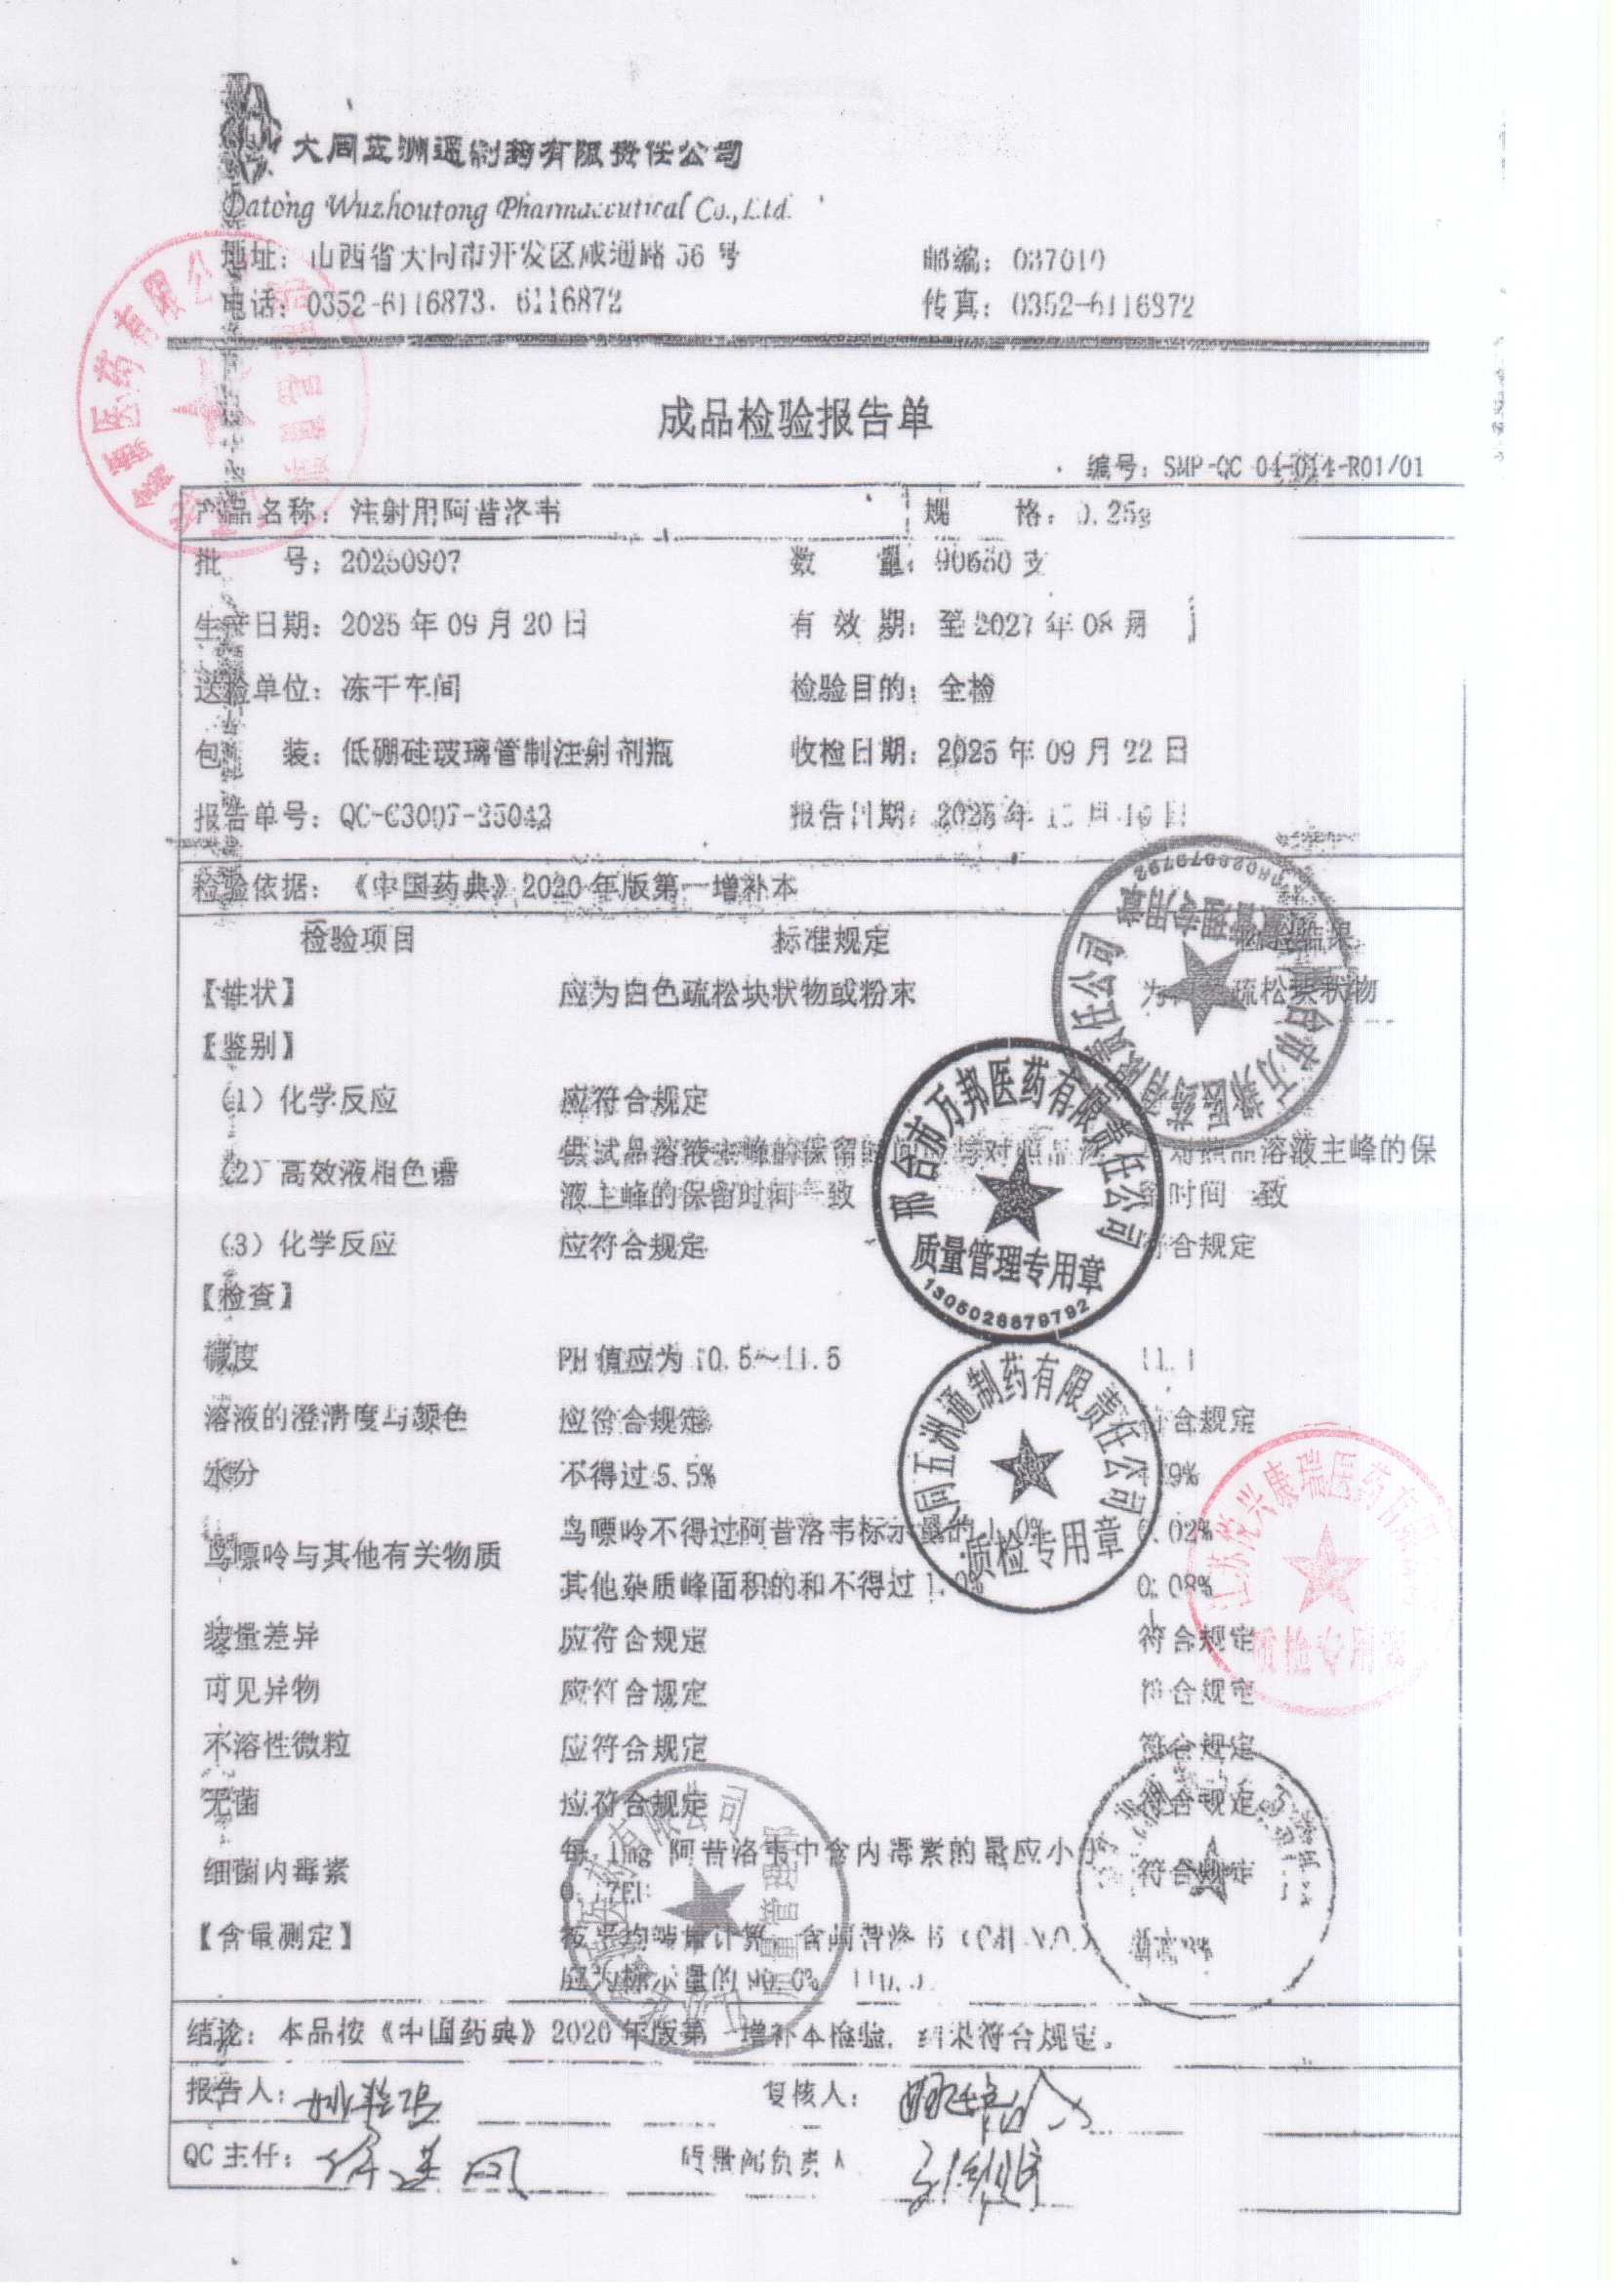 大同五洲通制药有限责任公司
Datong Wuzhoutong Pharmaceutical Co.,Ltd.
地址：山西省大同市开发区咸通路 36 号 邮编：037010
电话：0352-6116873、6116872 传真：0352-6116872
成品检验报告单
编号：SMP-QC-04-014-R01/01
产品名称：注射用阿昔洛韦 规 格：0.25g
批 号：20250907 数 量：90650 支
生产日期：2025 年 09 月 20 日 有 效 期：至 2027 年 08 月
送检单位：冻干车间 检验目的：全检
包 装：低硼硅玻璃管制注射剂瓶 收检日期：2025 年 09 月 22 日
报告单号：QC-C3007-25042 报告日期：2025 年 月 日
检验依据：《中国药典》2020 年版第一增补本
检验项目 标准规定 检验结果
【性状】 应为白色疏松块状物或粉末 为白色疏松块状物
【鉴别】
（1）化学反应 应符合规定
（2）高效液相色谱 供试品溶液主峰的保留时间 对照品 对照品溶液主峰的保
液主峰的保留时间一致 时间一致
（3）化学反应 应符合规定 符合规定
【检查】
碱度 PH 值应为 10.5～11.5 11.1
溶液的澄清度与颜色 应符合规定 符合规定
水分 不得过 5.5% 9%
鸟嘌呤与其他有关物质 鸟嘌呤不得过阿昔洛韦标示量的 1.0% 0.02%
其他杂质峰面积的和不得过 1.0% 0.08%
装量差异 应符合规定 符合规定
可见异物 应符合规定 符合规定
不溶性微粒 应符合规定 符合规定
无菌 应符合规定 符合规定
细菌内毒素 每 1mg 阿昔洛韦中含内毒素的量应小于 符合规定
【含量测定】 按平均装量计算，含阿昔洛韦
应为标示量的 90.0%
结论：本品按《中国药典》2020 年版第一增补本检验，结果符合规定。
报告人： 复核人：
QC 主任： 质量部负责人
邢台市万邦医药有限责任公司
质量管理专用章
1305028879792
大同五洲通制药有限责任公司
质检专用章
邢台市万邦医药有限责任公司
质量管理专用章
康瑞医药有限
质检专用章
医药有限公司
质量管理部